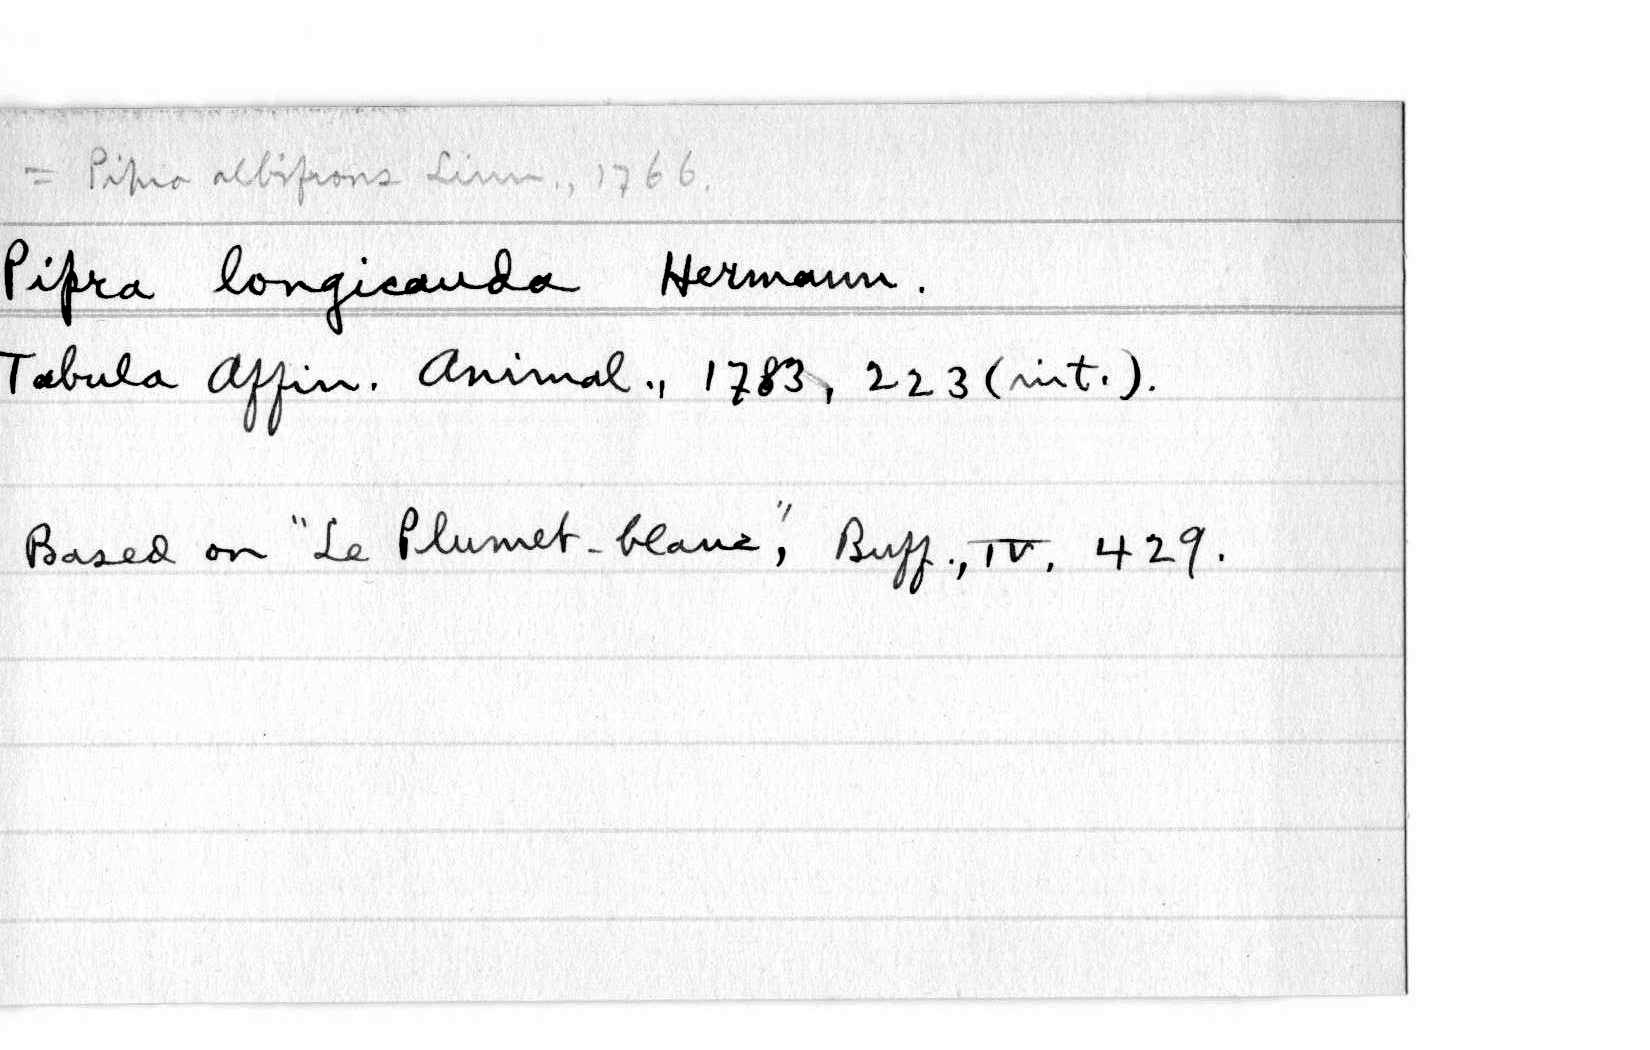 = Pipra albifrons Linn., 1766.
Pipra longicauda Hermann.
Tabula Affin. Animal., 1783, 223 (int.).
Based on "Le Plumet-blanc", Buff., IV, 429.